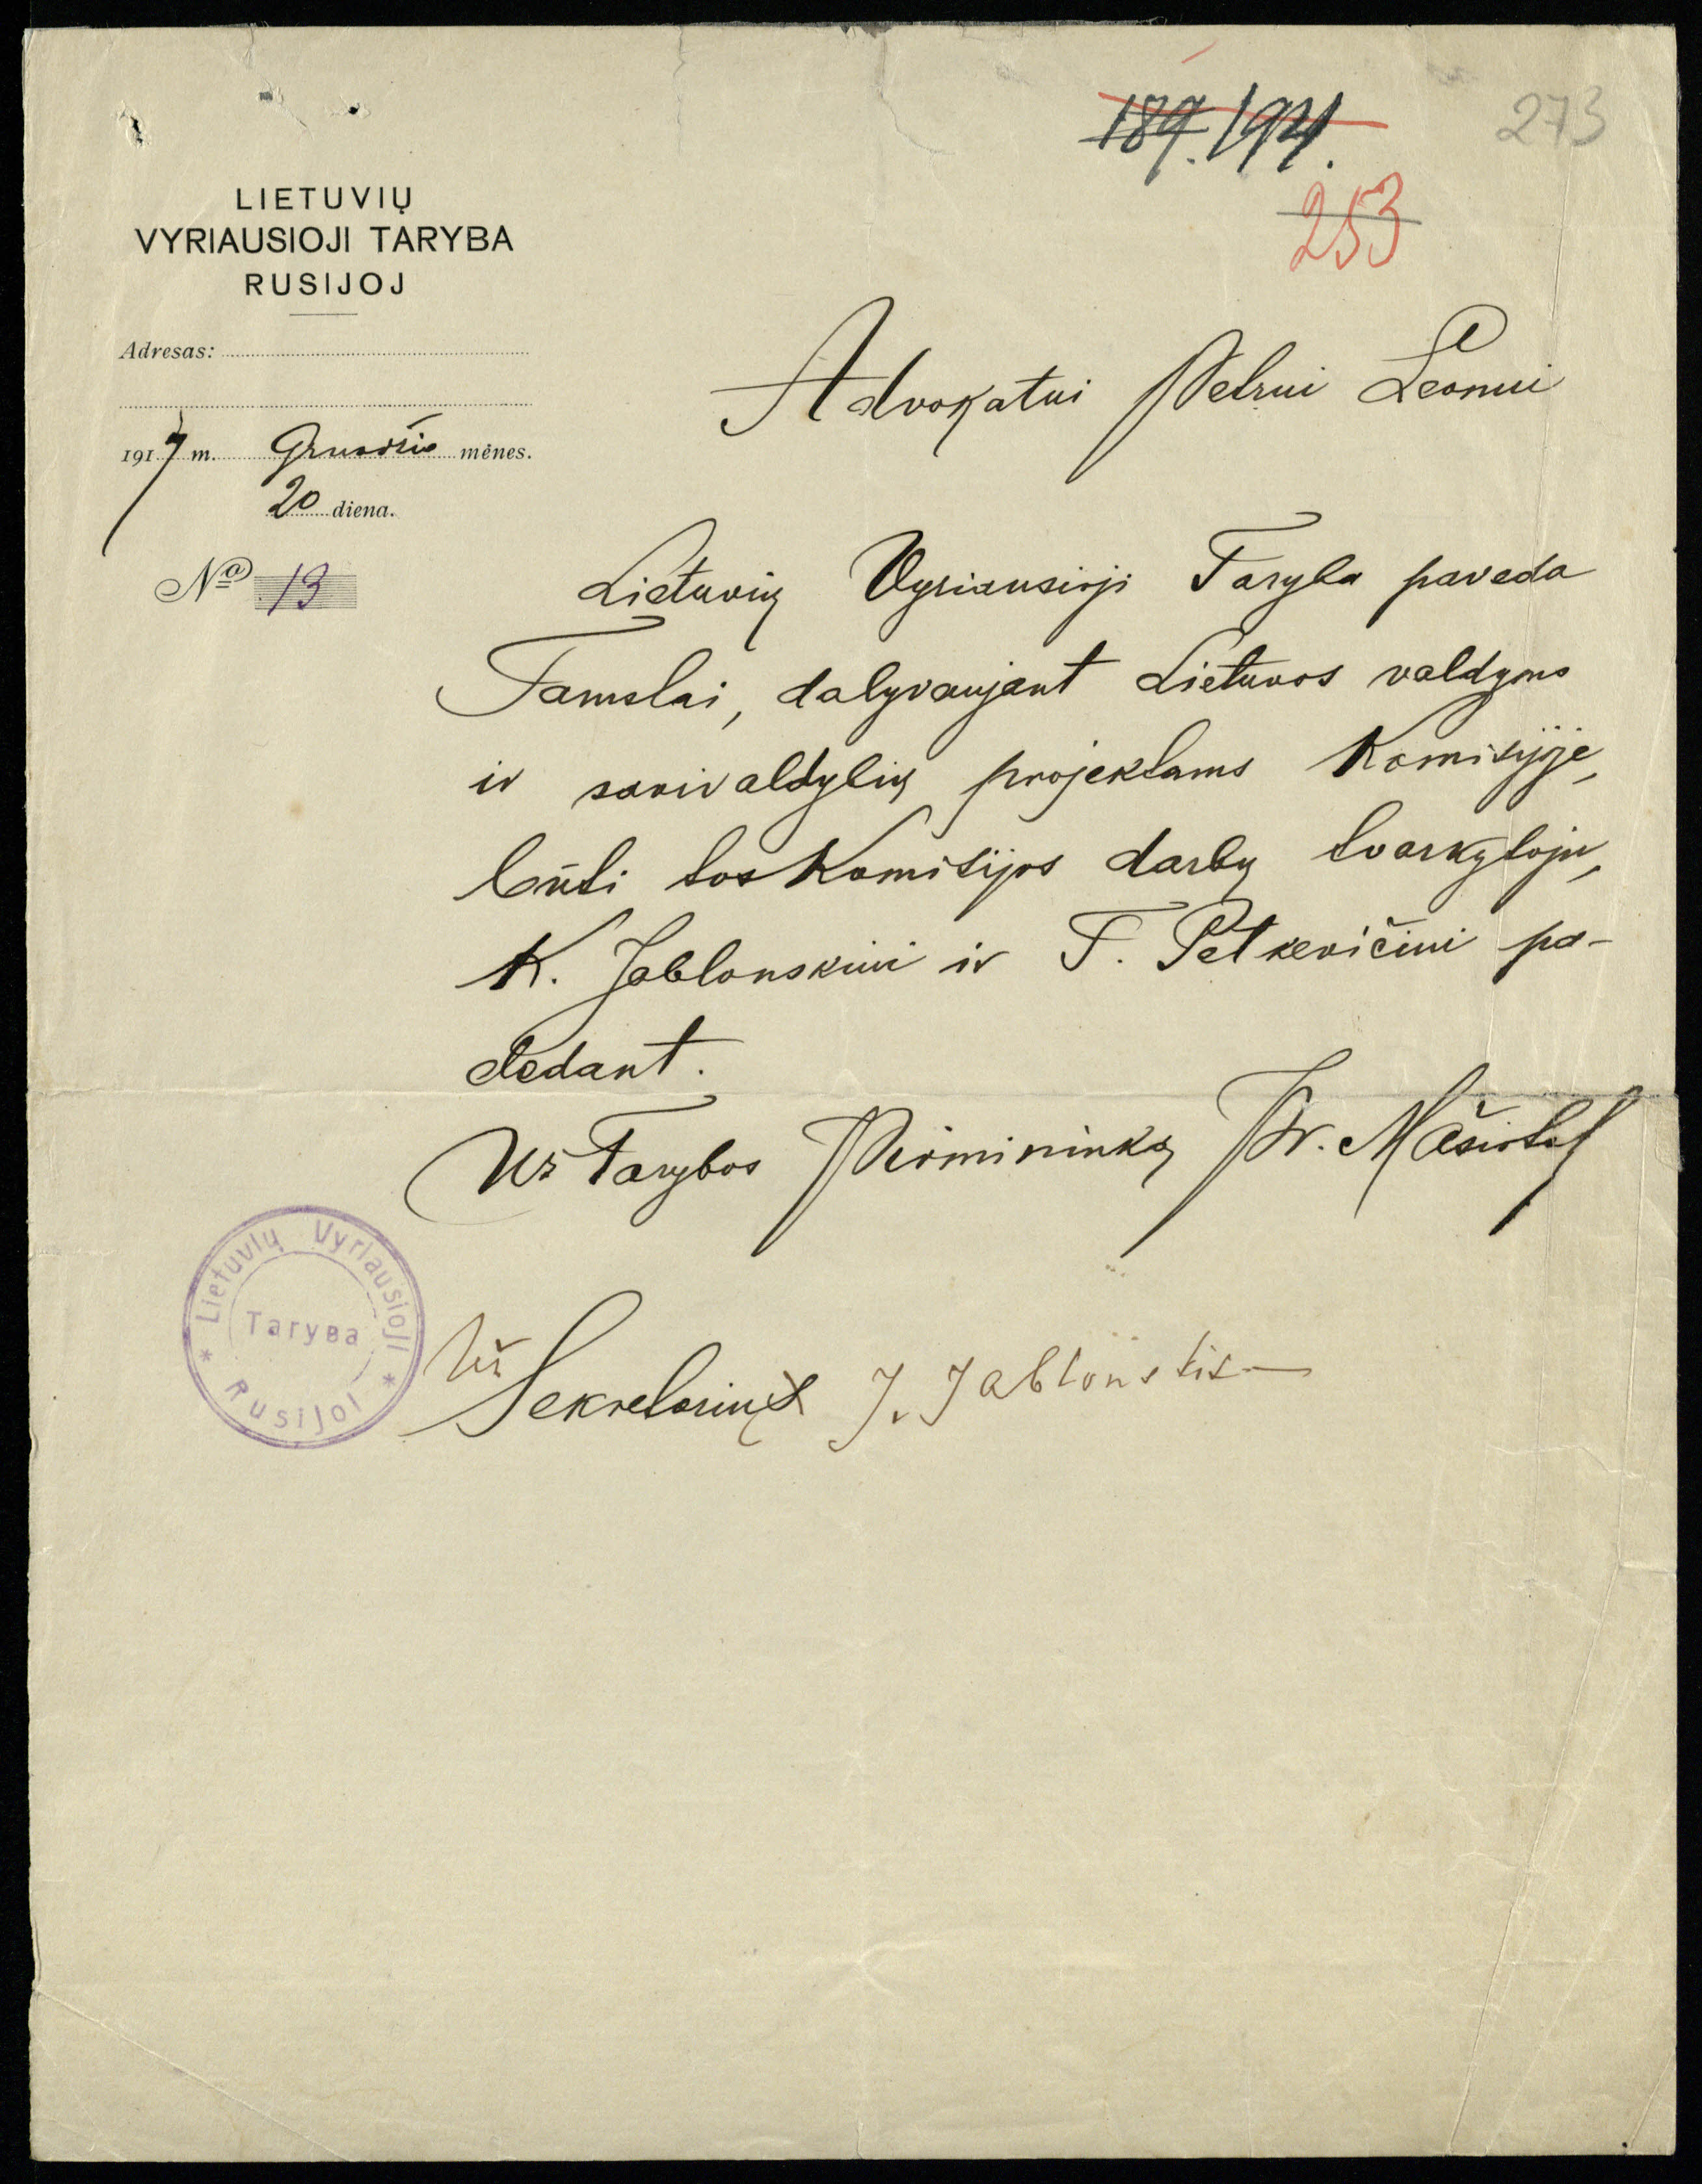 273
189. 194.
253
LIETUVIŲ
VYRIAUSIOJI TARYBA
RUSIJOJ
Adresas:
1917 m. Gruodžio mėnes.
20 diena.
№ 13
Advokatui Petrui Leonui
Lietuvių Vyriausioji Taryba paveda
Tamstai, dalyvaujant Lietuvos valdymo
ir savivaldybių projektams Komisijoje,
būti tos Komisijos darbų tvarkytoju,
K. Jablonskiui ir T. Petkevičiui pa-
dedant.
Už Tarybos Pirmininką Pr. Mašiotas
Už Sekretorių J. Jablonskis
Lietuvių Vyriausioji
Taryba
Rusijoj